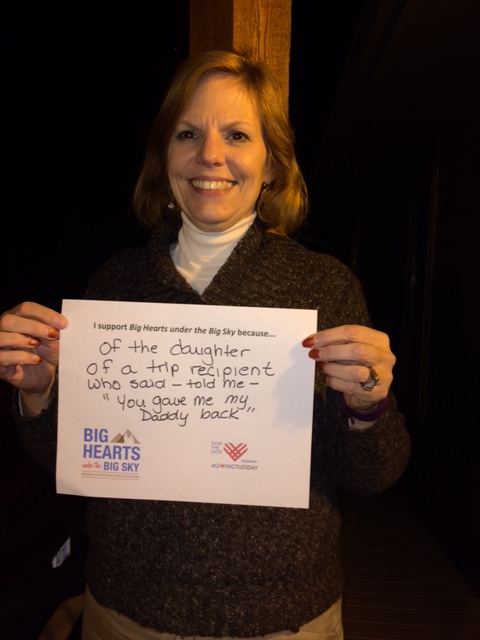 I support Big Hearts under the Big Sky because...
Of the daughter
of a trip recipient
who said - told me -
"You gave me my
Daddy back"
BIG
HEARTS
under the BIG SKY
SAVE
THE
DATE
#GIVINGTUESDAY